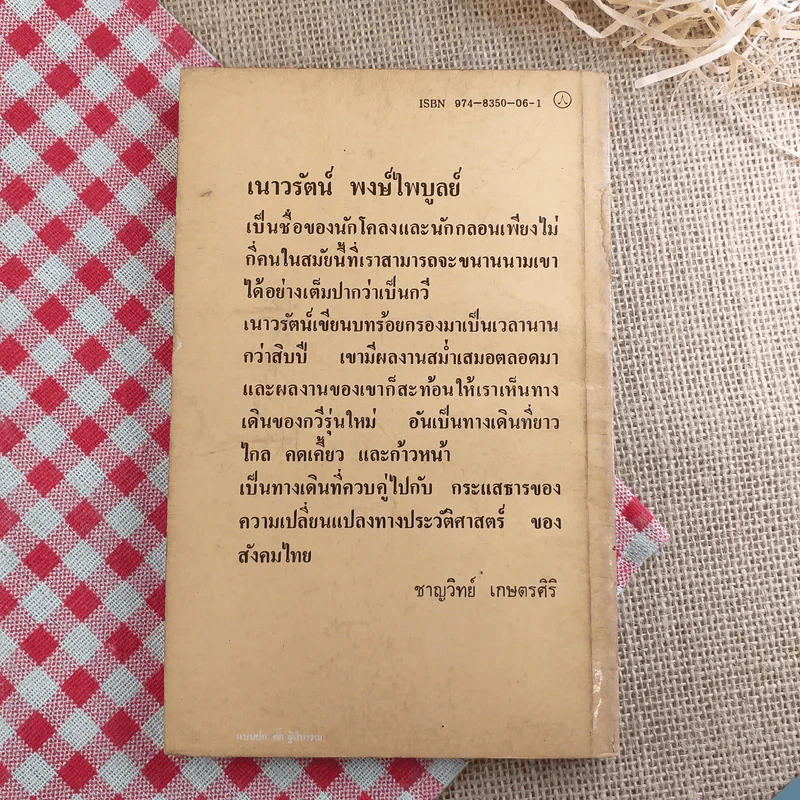 ISBN 974-8350-06-1
เนาวรัตน์ พงษ์ไพบูลย์
เป็นชื่อของนักโคลงและนักกลอนเพียงไม่
กี่คนในสมัยนี้ที่เราสามารถจะขนานนามเขา
ได้อย่างเต็มปากว่าเป็นกวี
เนาวรัตน์เขียนบทร้อยกรองมาเป็นเวลานาน
กว่าสิบปี เขามีผลงานสม่ำเสมอตลอดมา
และผลงานของเขาก็สะท้อนให้เราเห็นทาง
เดินของกวีรุ่นใหม่ อันเป็นทางเดินที่ยาว
ไกล คดเคี้ยว และก้าวหน้า
เป็นทางเดินที่ควบคู่ไปกับ กระแสธารของ
ความเปลี่ยนแปลงทางประวัติศาสตร์ ของ
สังคมไทย
ชาญวิทย์ เกษตรศิริ